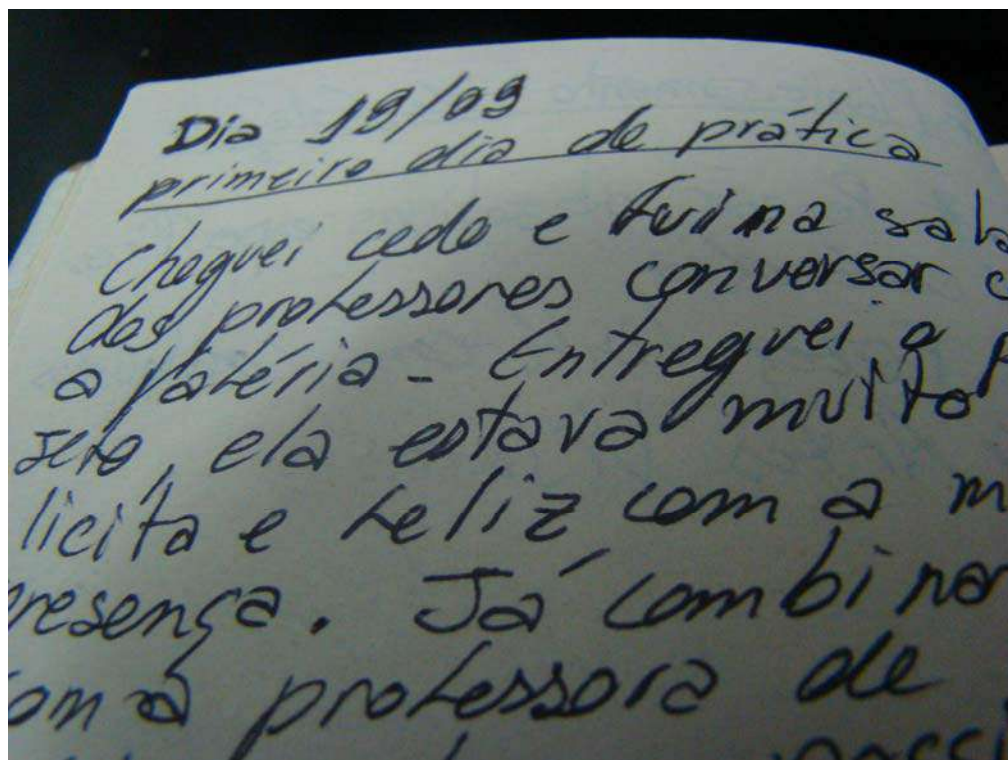 Dia 19/09
primeiro dia de prática
Cheguei cedo e fui na sala
dos professores conversar
a Valéria - Entreguei o
ela estava muito
licita e feliz com a
presença. Já
com a professora de